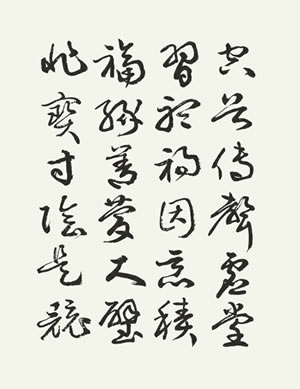 空谷傳聲虛堂
習聽禍因惡積
福緣善慶尺璧
非寶寸陰是競